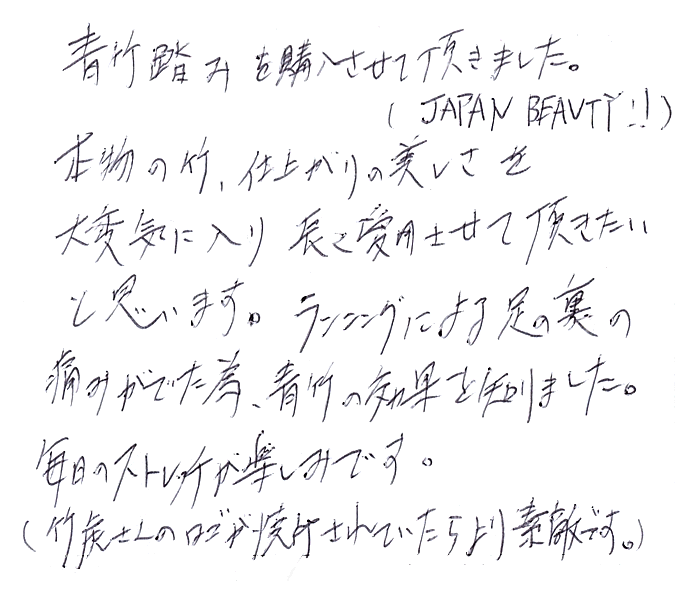 青竹踏みを購入させて頂きました。
(JAPAN BEAUTY!!)
本物の竹、仕上がりの美しさを
大変気に入り長く愛用させて頂きたい
と思います。ランニングによる足の裏の
痛みがでた為、青竹の効果を知りました。
毎日のストレッチが楽しみです。
(竹虎さんのロゴが焼印されていたらより素敵です。)